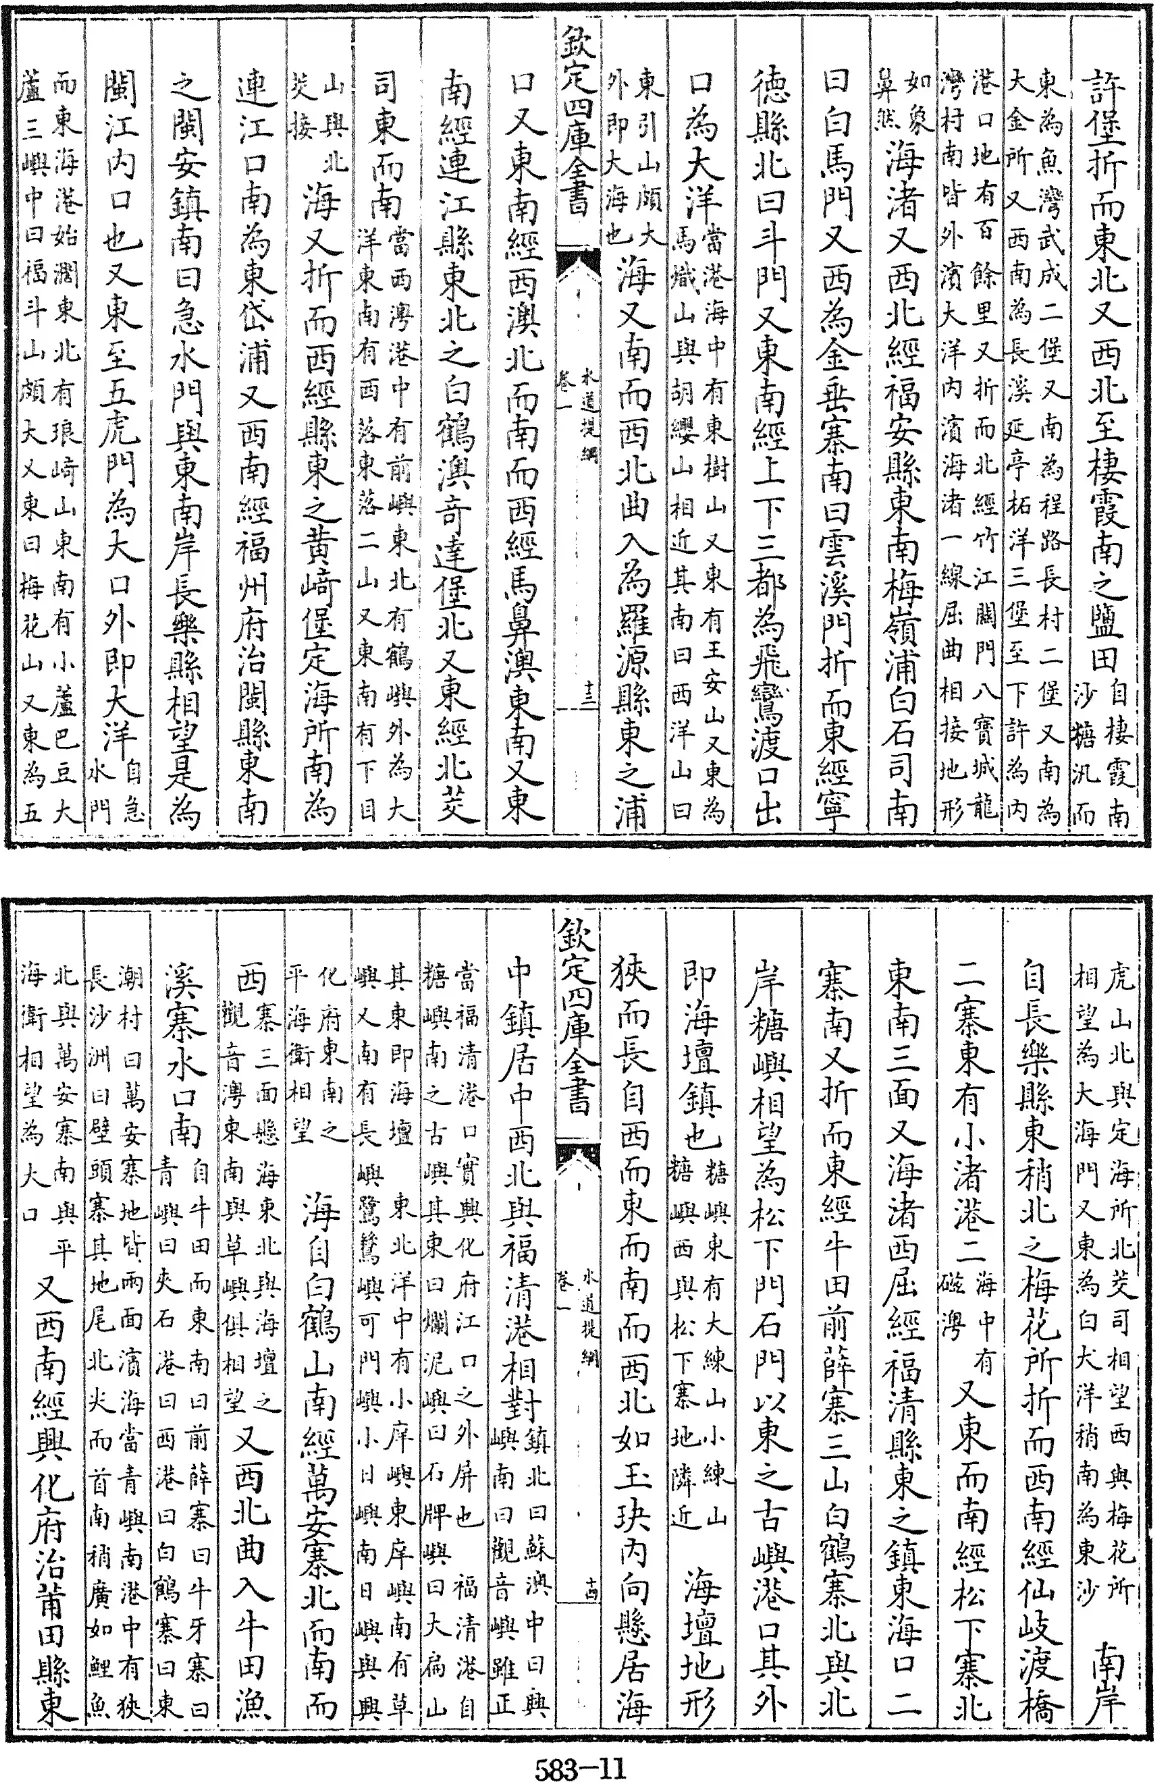 許堡折而東北又西北至棲霞南之鹽田自棲霞南
沙糖汛而
東為魚灣武成二堡又南為程路長村二堡又南為
大金所又西南為長溪延亭柘洋三堡至下許為内
港口地有百餘里又折而北經竹江關門八寶城龍
灣村南皆外濱大洋内濱海渚一線屈曲相接地形
如象
鼻然海渚又西北經福安縣東南梅嶺浦白石司南
曰白馬門又西為金垂寨南曰雲溪門折而東經寧
徳縣北曰斗門又東南經上下三都為飛鸞渡口出
口為大洋當港海中有東樹山又東有王安山又東為
馬熾山與胡纓山相近其南曰西洋山曰
東引山頗大
外即大海也海又南而西北曲入為羅源縣東之浦
欽定四庫全書
水道提綱
卷一
十三
口又東南經西澳北而南而西經馬鼻澳東南又東
南經連江縣東北之白鶴澳竒達堡北又東經北茭
司東而南當西灣港中有前嶼東北有鶴嶼外為大
洋東南有西落東落二山又東南有下目
山與北
茭接海又折而西經縣東之黄﨑堡定海所南為
連江口南為東岱浦又西南經福州府治閩縣東南
之閩安鎮南曰急水門與東南岸長樂縣相望是為
閩江内口也又東至五虎門為大口外即大洋自急
水門
而東海港始濶東北有琅﨑山東南有小蘆巴豆大
蘆三嶼中曰福斗山頗大又東曰梅花山又東為五
虎山北與定海所北茭司相望西與梅花所
相望為大海門又東為白犬洋稍南為東沙南岸
自長樂縣東稍北之梅花所折而西南經仙岐渡橋
二寨東有小渚港二海中有
磁灣又東而南經松下寨北
東南三面又海渚西屈經福清縣東之鎮東海口二
寨南又折而東經牛田前薛寨三山白鶴寨北與北
岸糖嶼相望為松下門石門以東之古嶼港口其外
即海壇鎮也糖嶼東有大練山小練山
糖嶼西與松下寨地隣近海壇地形
狹而長自西而東而南而西北如玉玦内向懸居海
欽定四庫全書
水道提綱
卷一
十四
中鎮居中西北與福清港相對鎮北曰蘇澳中曰興
嶼南曰觀音嶼雖正
當福清港口實興化府江口之外屏也福清港自
糖嶼南之古嶼其東曰爛泥嶼曰石牌嶼曰大扁山
其東即海壇東北洋中有小庠嶼東庠嶼南有草
嶼又南有長嶼鷺鶿嶼可門嶼小日嶼南日嶼與興
化府東南之
平海衛相望海自白鶴山南經萬安寨北而南而
西寨三面懸海東北與海壇之
觀音灣東南與草嶼俱相望又西北曲入牛田漁
溪寨水口南自牛田而東南曰前薛寨曰牛牙寨曰
青嶼曰夾石港曰西港曰白鶴寨曰東
潮村曰萬安寨地皆兩面濱海當青嶼南港中有狹
長沙洲曰壁頭寨其地尾北尖而首南稍廣如鯉魚
北與萬安寨南與平
海衛相望為大口又西南經興化府治莆田縣東
583-11